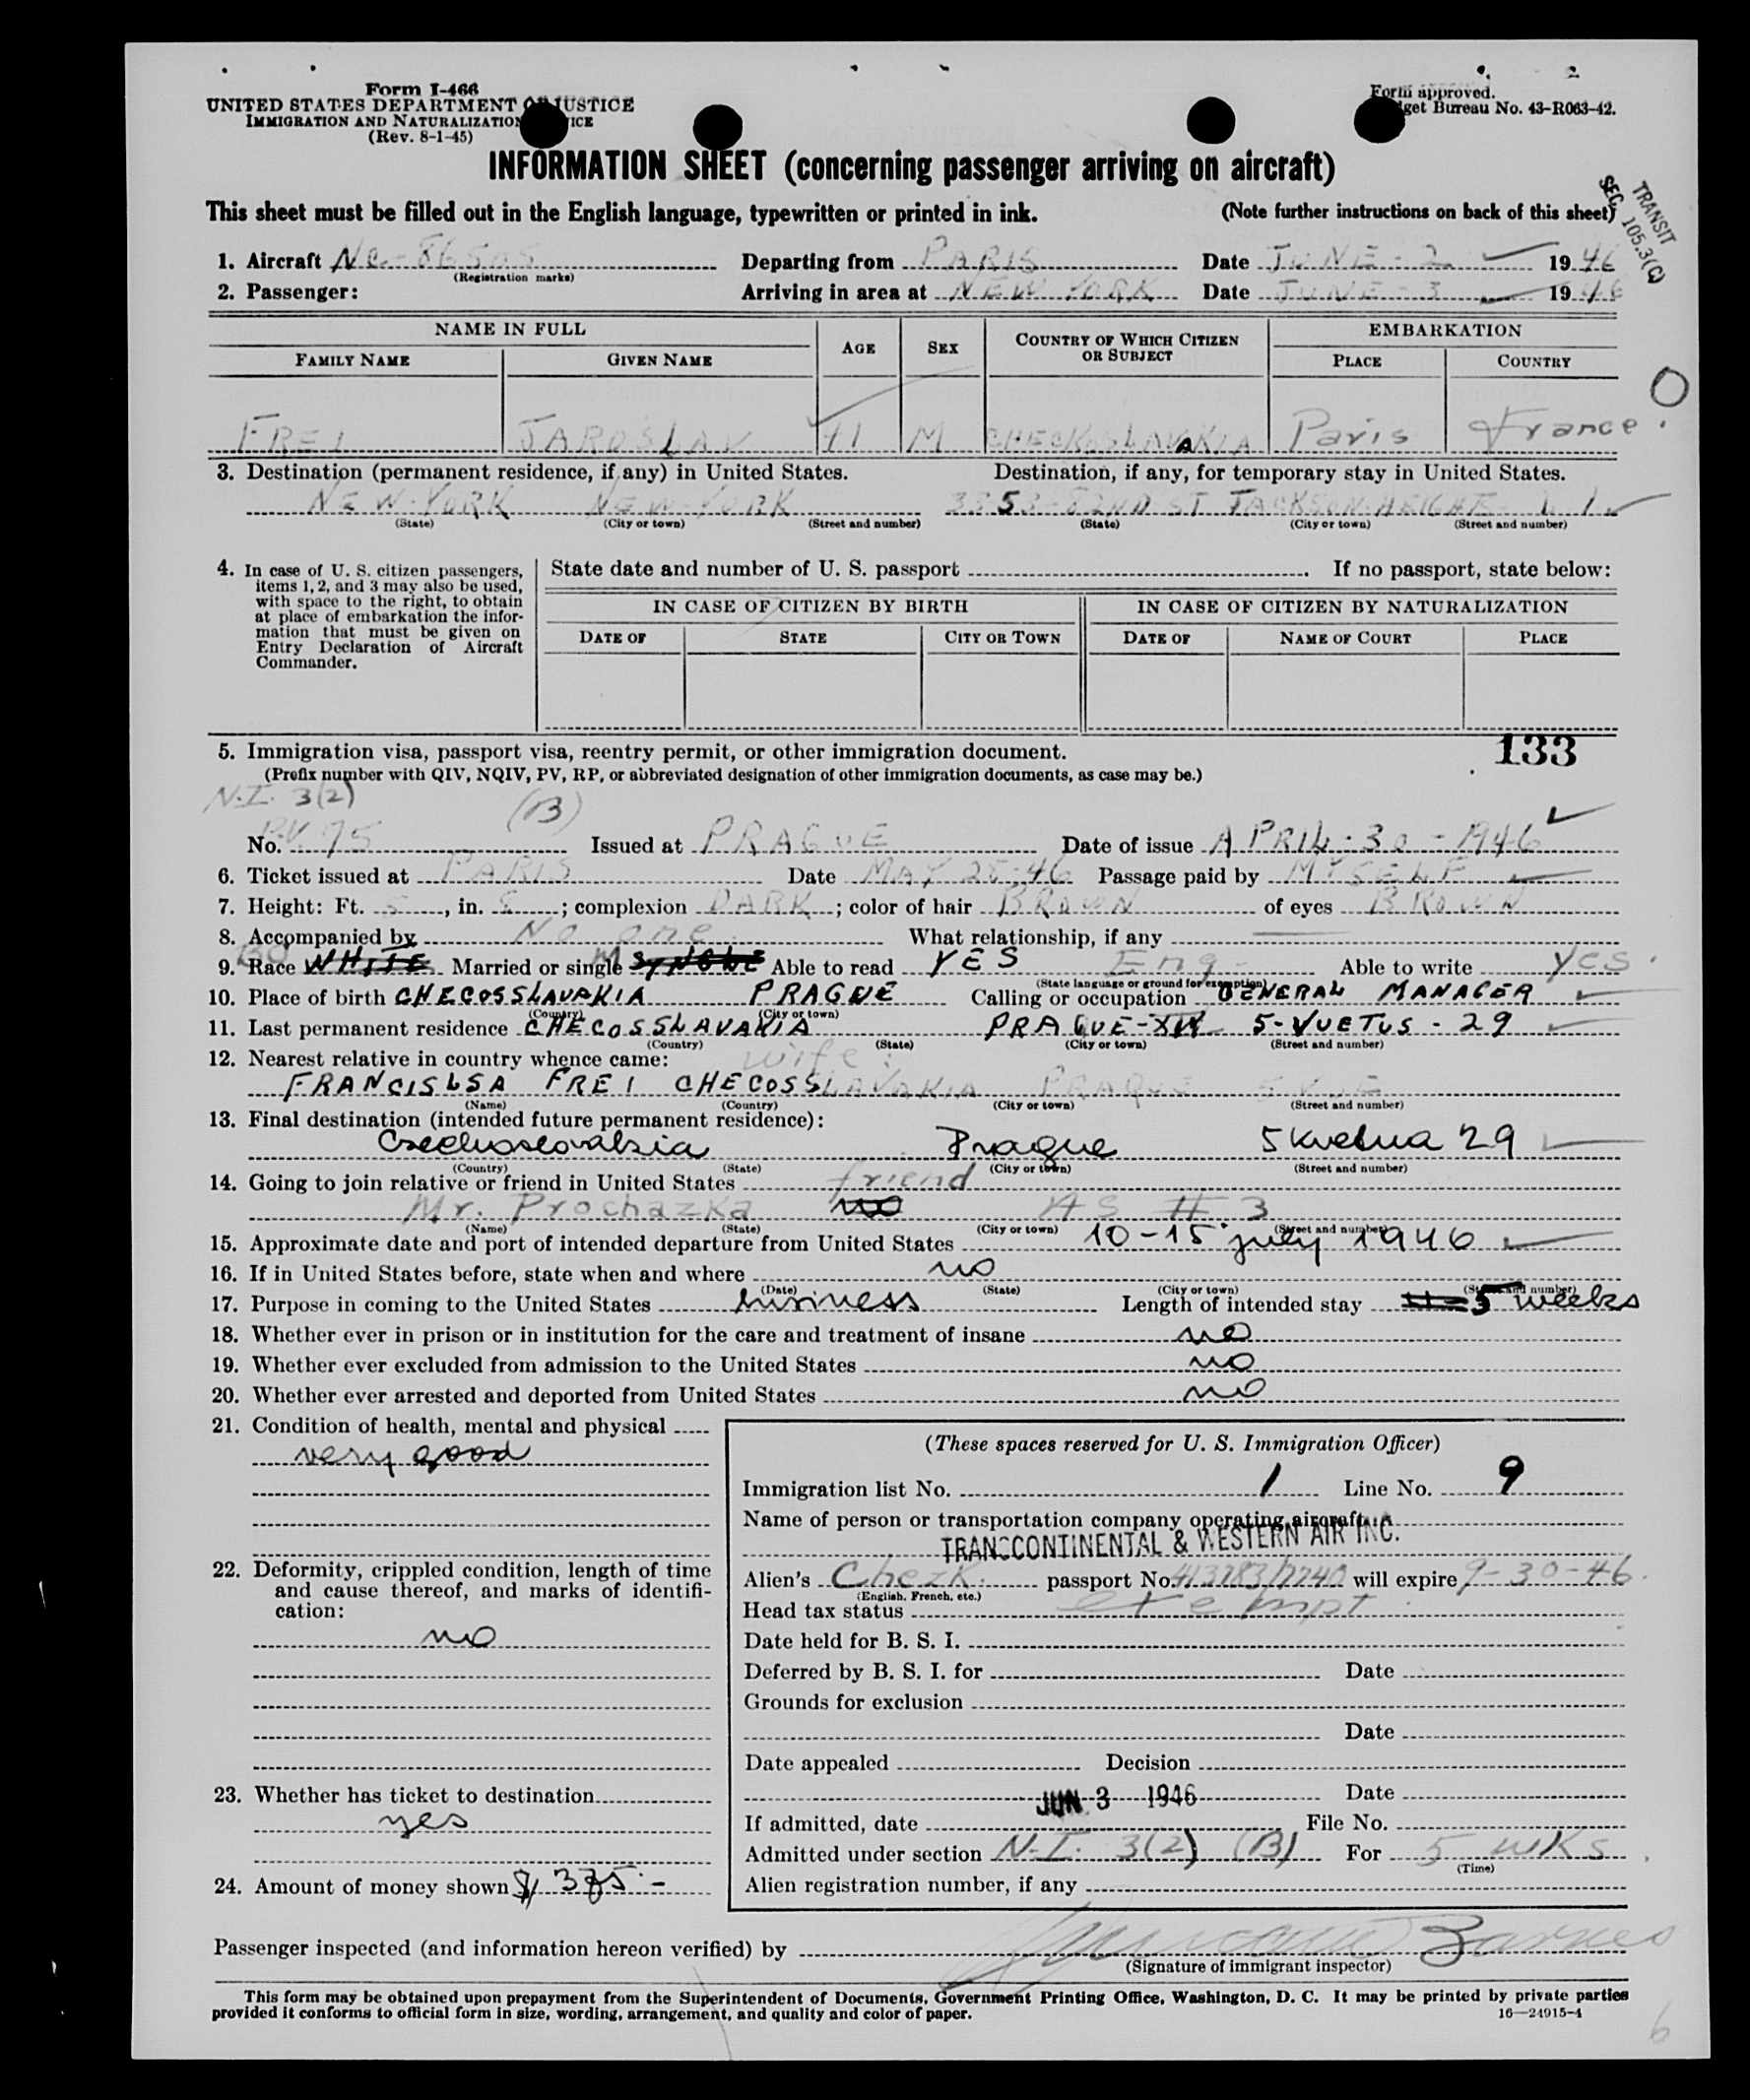 Form I-466
UNITED STATES DEPARTMENT OF JUSTICE
IMMIGRATION AND NATURALIZATION SERVICE
(Rev. 8-1-45)
Form approved.
Budget Bureau No. 43-R063-42.
INFORMATION SHEET (concerning passenger arriving on aircraft)
This sheet must be filled out in the English language, typewritten or printed in ink. (Note further instructions on back of this sheet)
TRANSIT
SEC. 105.3(C)
1. Aircraft NC-86505 Departing from PARIS Date JUNE-2 1946
(Registration marks)
2. Passenger: Arriving in area at NEW YORK Date JUNE-3 1946
NAME IN FULL AGE SEX COUNTRY OF WHICH CITIZEN OR SUBJECT EMBARKATION
FAMILY NAME GIVEN NAME PLACE COUNTRY
O
FREI JAROSLAV 41 M CHECKOSLAVAKIA Paris France.
3. Destination (permanent residence, if any) in United States. Destination, if any, for temporary stay in United States.
NEW-YORK NEW-YORK 3353-82ND ST JACKSON HEIGHT L I
(State) (City or town) (Street and number) (State) (City or town) (Street and number)
4. In case of U. S. citizen passengers, items 1, 2, and 3 may also be used, with space to the right, to obtain at place of embarkation the information that must be given on Entry Declaration of Aircraft Commander.
State date and number of U. S. passport If no passport, state below:
IN CASE OF CITIZEN BY BIRTH IN CASE OF CITIZEN BY NATURALIZATION
DATE OF STATE CITY OR TOWN DATE OF NAME OF COURT PLACE
133
5. Immigration visa, passport visa, reentry permit, or other immigration document.
(Prefix number with QIV, NQIV, PV, RP, or abbreviated designation of other immigration documents, as case may be.)
N.I. 3(2) (B)
No. P.V. 75 Issued at PRAGUE Date of issue APRIL-30-1946
6. Ticket issued at PARIS Date MAY 25-46 Passage paid by MYSELF
7. Height: Ft. 5, in. 8; complexion DARK; color of hair BROWN of eyes BROWN
8. Accompanied by No one. What relationship, if any
9. Race WHITE Married or single M SINGLE Able to read YES Eng- Able to write Yes.
(State language or ground for exemption)
10. Place of birth CHECOSSLAVAKIA PRAGUE Calling or occupation GENERAL MANAGER
(Country) (City or town)
11. Last permanent residence CHECOSSLAVAKIA PRAGUE-XIV 5-VUETUS-29
(Country) (State) (City or town) (Street and number)
12. Nearest relative in country whence came: wife:
FRANCISLSA FREI CHECOSSLAVAKIA PRAGUE
(Name) (Country) (City or town) (Street and number)
13. Final destination (intended future permanent residence):
Czechoslovakia Prague 5 kvetna 29
(Country) (State) (City or town) (Street and number)
14. Going to join relative or friend in United States friend
Mr. Prochazka no AS # 3
(Name) (State) (City or town) (Street and number)
15. Approximate date and port of intended departure from United States 10-15 july 1946
16. If in United States before, state when and where no
(Date) (State) (City or town) (Street and number)
17. Purpose in coming to the United States business Length of intended stay 5 weeks
18. Whether ever in prison or in institution for the care and treatment of insane no
19. Whether ever excluded from admission to the United States no
20. Whether ever arrested and deported from United States no
21. Condition of health, mental and physical
very good
22. Deformity, crippled condition, length of time and cause thereof, and marks of identification:
no
23. Whether has ticket to destination
yes
24. Amount of money shown $ 375.-
(These spaces reserved for U. S. Immigration Officer)
Immigration list No. 1 Line No. 9
Name of person or transportation company operating aircraft
TRANSCONTINENTAL & WESTERN AIR INC.
Alien's Chezk. passport No. 413783/7740 will expire 9-30-46.
(English, French, etc.)
Head tax status exempt
Date held for B. S. I.
Deferred by B. S. I. for Date
Grounds for exclusion
Date
Date appealed Decision
Date
JUN 3 1946
If admitted, date File No.
Admitted under section N.I. 3(2) (B) For 5 WKS.
(Time)
Alien registration number, if any
Passenger inspected (and information hereon verified) by Barnes
(Signature of immigrant inspector)
This form may be obtained upon prepayment from the Superintendent of Documents, Government Printing Office, Washington, D. C. It may be printed by private parties
provided it conforms to official form in size, wording, arrangement, and quality and color of paper.
16—24915-4
6